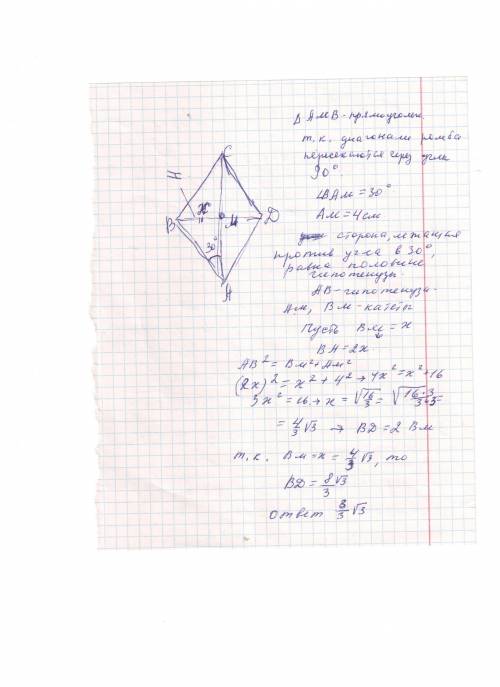 Δ АМВ - прямоуголн.
т.к. диагонали ромба
пересекаются через угли
90°
∠BAM = 30°
AM = 4 см
сторона, лежащая
против уг-ка в 30°,
равна половине
гипотенузы
AB - гипотенуза
AM, BM - катеты
Пусть BM = x
BA = 2x
AB² = BM² + AM²
(2x)² = x² + 4² → 4x² = x² + 16
3x² = 16 → x = √16/3 = √16·3/3·3 =
= 4/3 √3 → BD = 2 BM
т.к. BM = x = 4/3 √3, то
BD = 8/3 √3
ответ 8/3 √3
C
H
x
B
M
D
30°
A